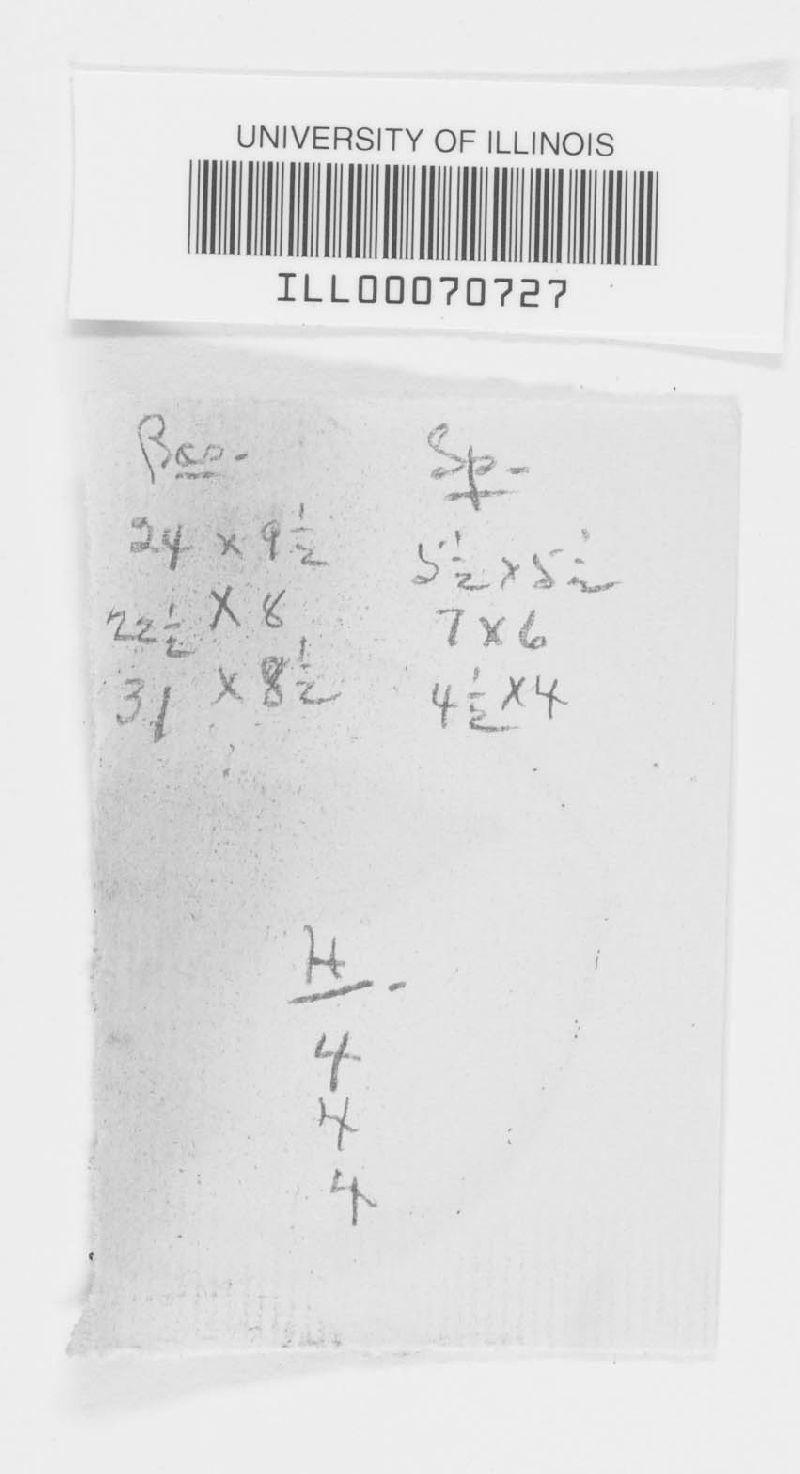 UNIVERSITY OF ILLINOIS
ILL00070727
Bas-
24 x 9 1/2
22 1/2 x 8
31 x 8 1/2
Sp-
5 1/2 x 5 1/2
7 x 6
4 1/2 x 4
H-
4
4
4